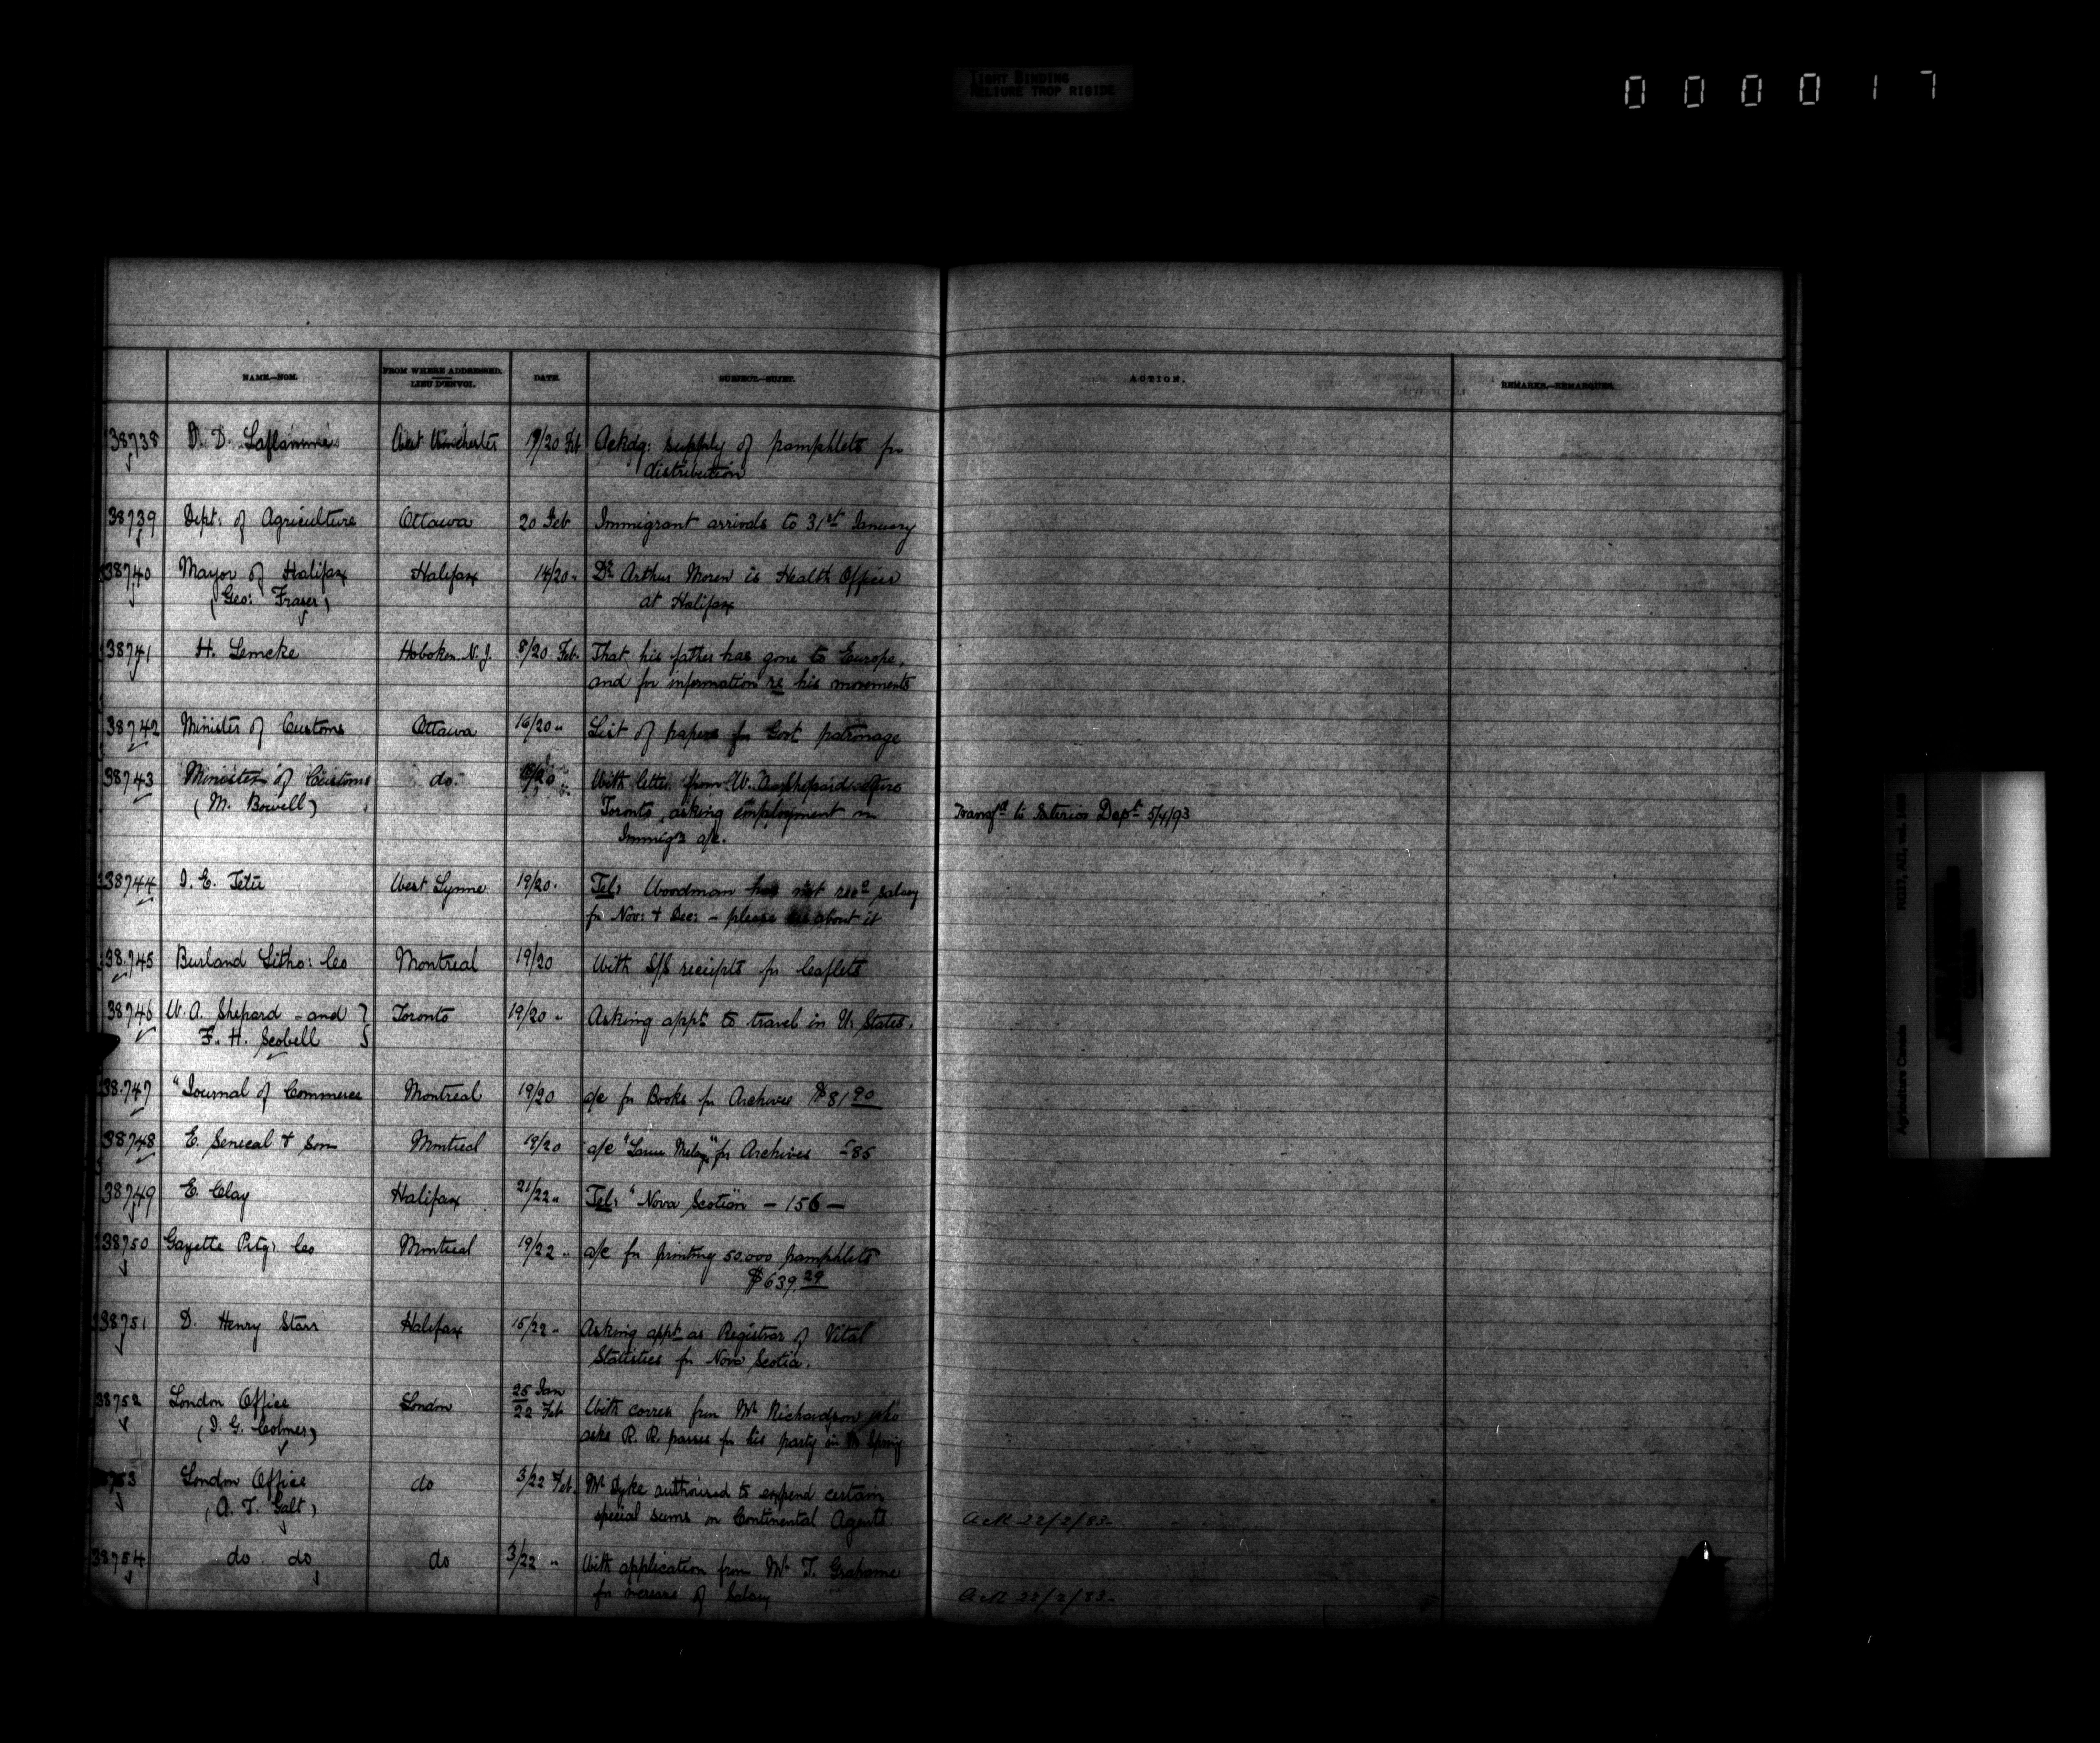 TIGHT BINDING
RELIURE TROP RIGIDE
000017
NAME.—NOM. FROM WHERE ADDRESSED. LIEU D'ENVOI. DATE. SUBJECT.—SUJET. ACTION. REMARKS.—REMARQUES.
38738 D. D. Laflamme West Winchester 19/20 Feb Ackdg: supply of pamphlets for
distribution
38739 Dept: of Agriculture Ottawa 20 Feb Immigrant arrivals to 31st January
38740 Mayor of Halifax Halifax 14/20 " Dr Arthur Moren is Health Officer
(Geo: Fraser) at Halifax
38741 H. Lemcke Hoboken N.J. 8/20 Feb. That his father has gone to Europe,
and for information re his movements
38742 Minister of Customs Ottawa 16/20 " List of papers for Govt patronage
38743 Minister of Customs do. With letter from W. Shepard
(M. Bowell) Toronto, asking employment in Transfd to Interior Dept 5/4/93
Immign a/c.
38744 J. E. Tetu West Lynne 19/20. Tel: Woodman has not recd salary
for Nov: & Dec: – please about it
38745 Burland Litho: Co Montreal 19/20 With S/S receipts for leaflets
38746 W. A. Shepard – and Toronto 19/20 " Asking appt to travel in U. States.
F. H. Scobell
38747 "Journal of Commerce Montreal 19/20 a/c for Books for Archives $81 90
38748 E. Senecal & Son Montreal 19/20 a/c for Archives 85
38749 E. Clay Halifax 21/22 " Tel: "Nova Scotian" – 156 –
38750 Gazette Ptg: Co Montreal 19/22 " a/c for printing 50.000 pamphlets
$639.29
38751 D. Henry Starr Halifax 15/22 " Asking appt as Registrar of Vital
Statistics for Nova Scotia.
38752 London Office London 25 Jan
22 Feb With corres from Mr Richardson who
(J. G. Colmer) asks R. R. passes for his party in Spring
38753 London Office do 3/22 Feb. Mr Dyke authorised to expend certain
(A. T. Galt) special sums on Continental Agents. 22/2/83
38754 do do do 3/22 " With application from Mr T. Grahame
for increase of Salary 22/2/83
Agriculture Canada RG17, AII, vol.